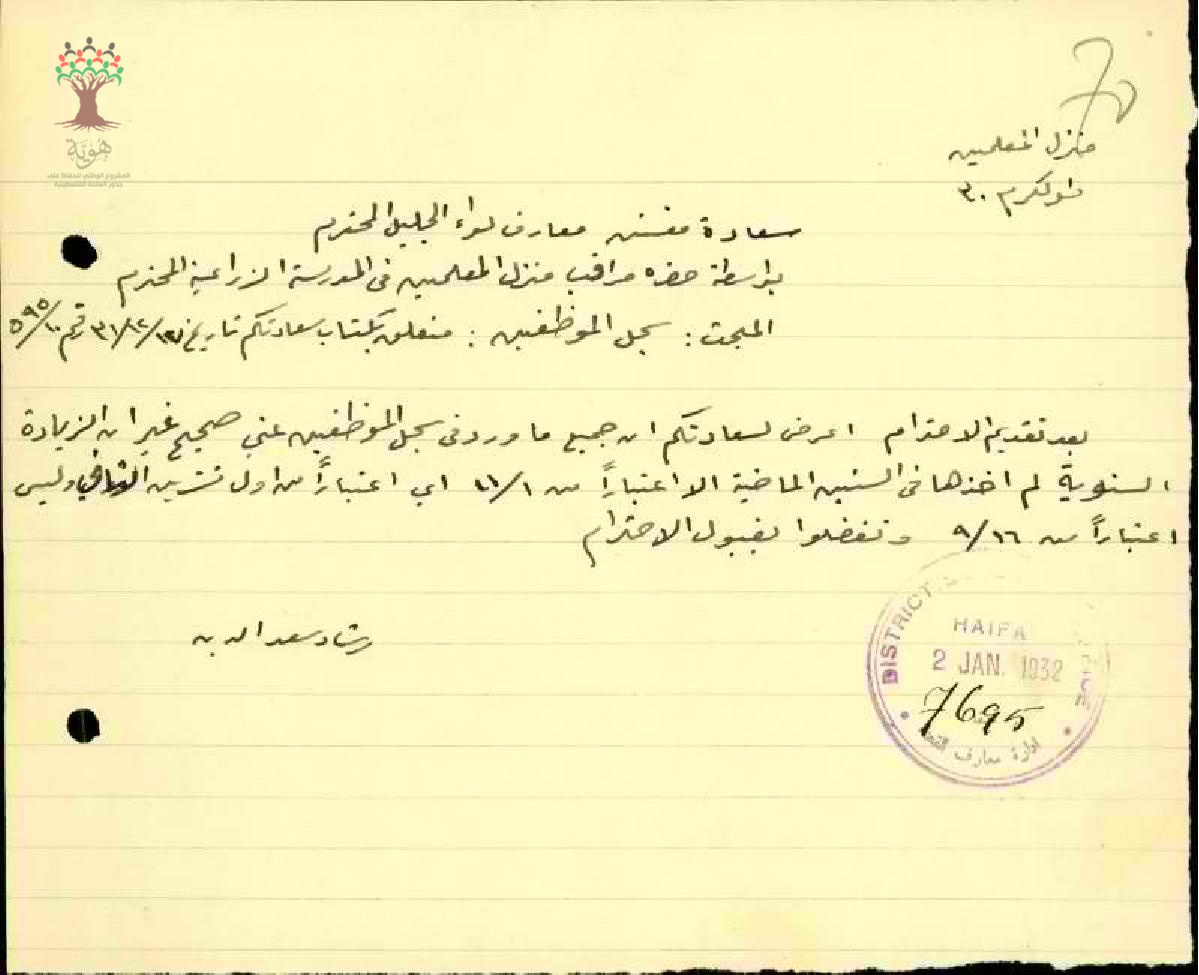 هُويّة
المشروع الوطني للحفاظ على
جذور العائلة الفلسطينية
منزل المعلمين
طولكرم ٣٠
سعادة مفتش معارف لواء الجليل المحترم
بواسطة حضرة مراقب منزل المعلمين في المدرسة الزراعية المحترم
المبحث : سجل الموظفين : متعلق بكتاب سعادتكم تاريخ ٣١/١٢ رقم
بعد تقديم الاحترام اعرض لسعادتكم ان جميع ما ورد في سجل الموظفين عني صحيح غير ان الزيادة
السنوية لم اخذها في السنين الماضية الا اعتباراً من ١١/١ اي اعتباراً من اول تشرين الثاني وليس
اعتباراً من ٩/١٦ وتفضلوا بقبول الاحترام
رشاد سعد الدين
DISTRICT
HAIFA
2 JAN. 1932
7695
ادارة معارف